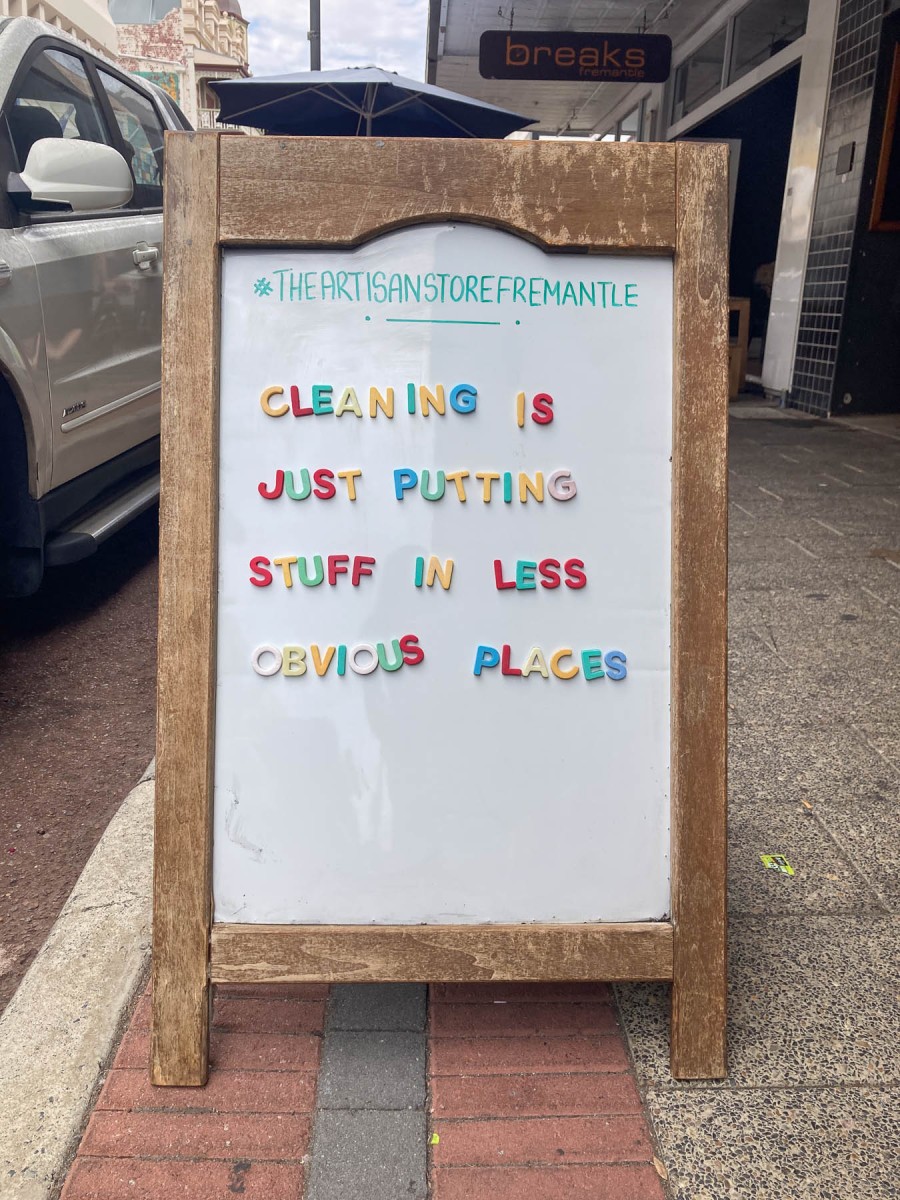 breaks
fremantle
#THEARTISANSTOREFREMANTLE
CLEANING IS
JUST PUTTING
STUFF IN LESS
OBVIOUS PLACES